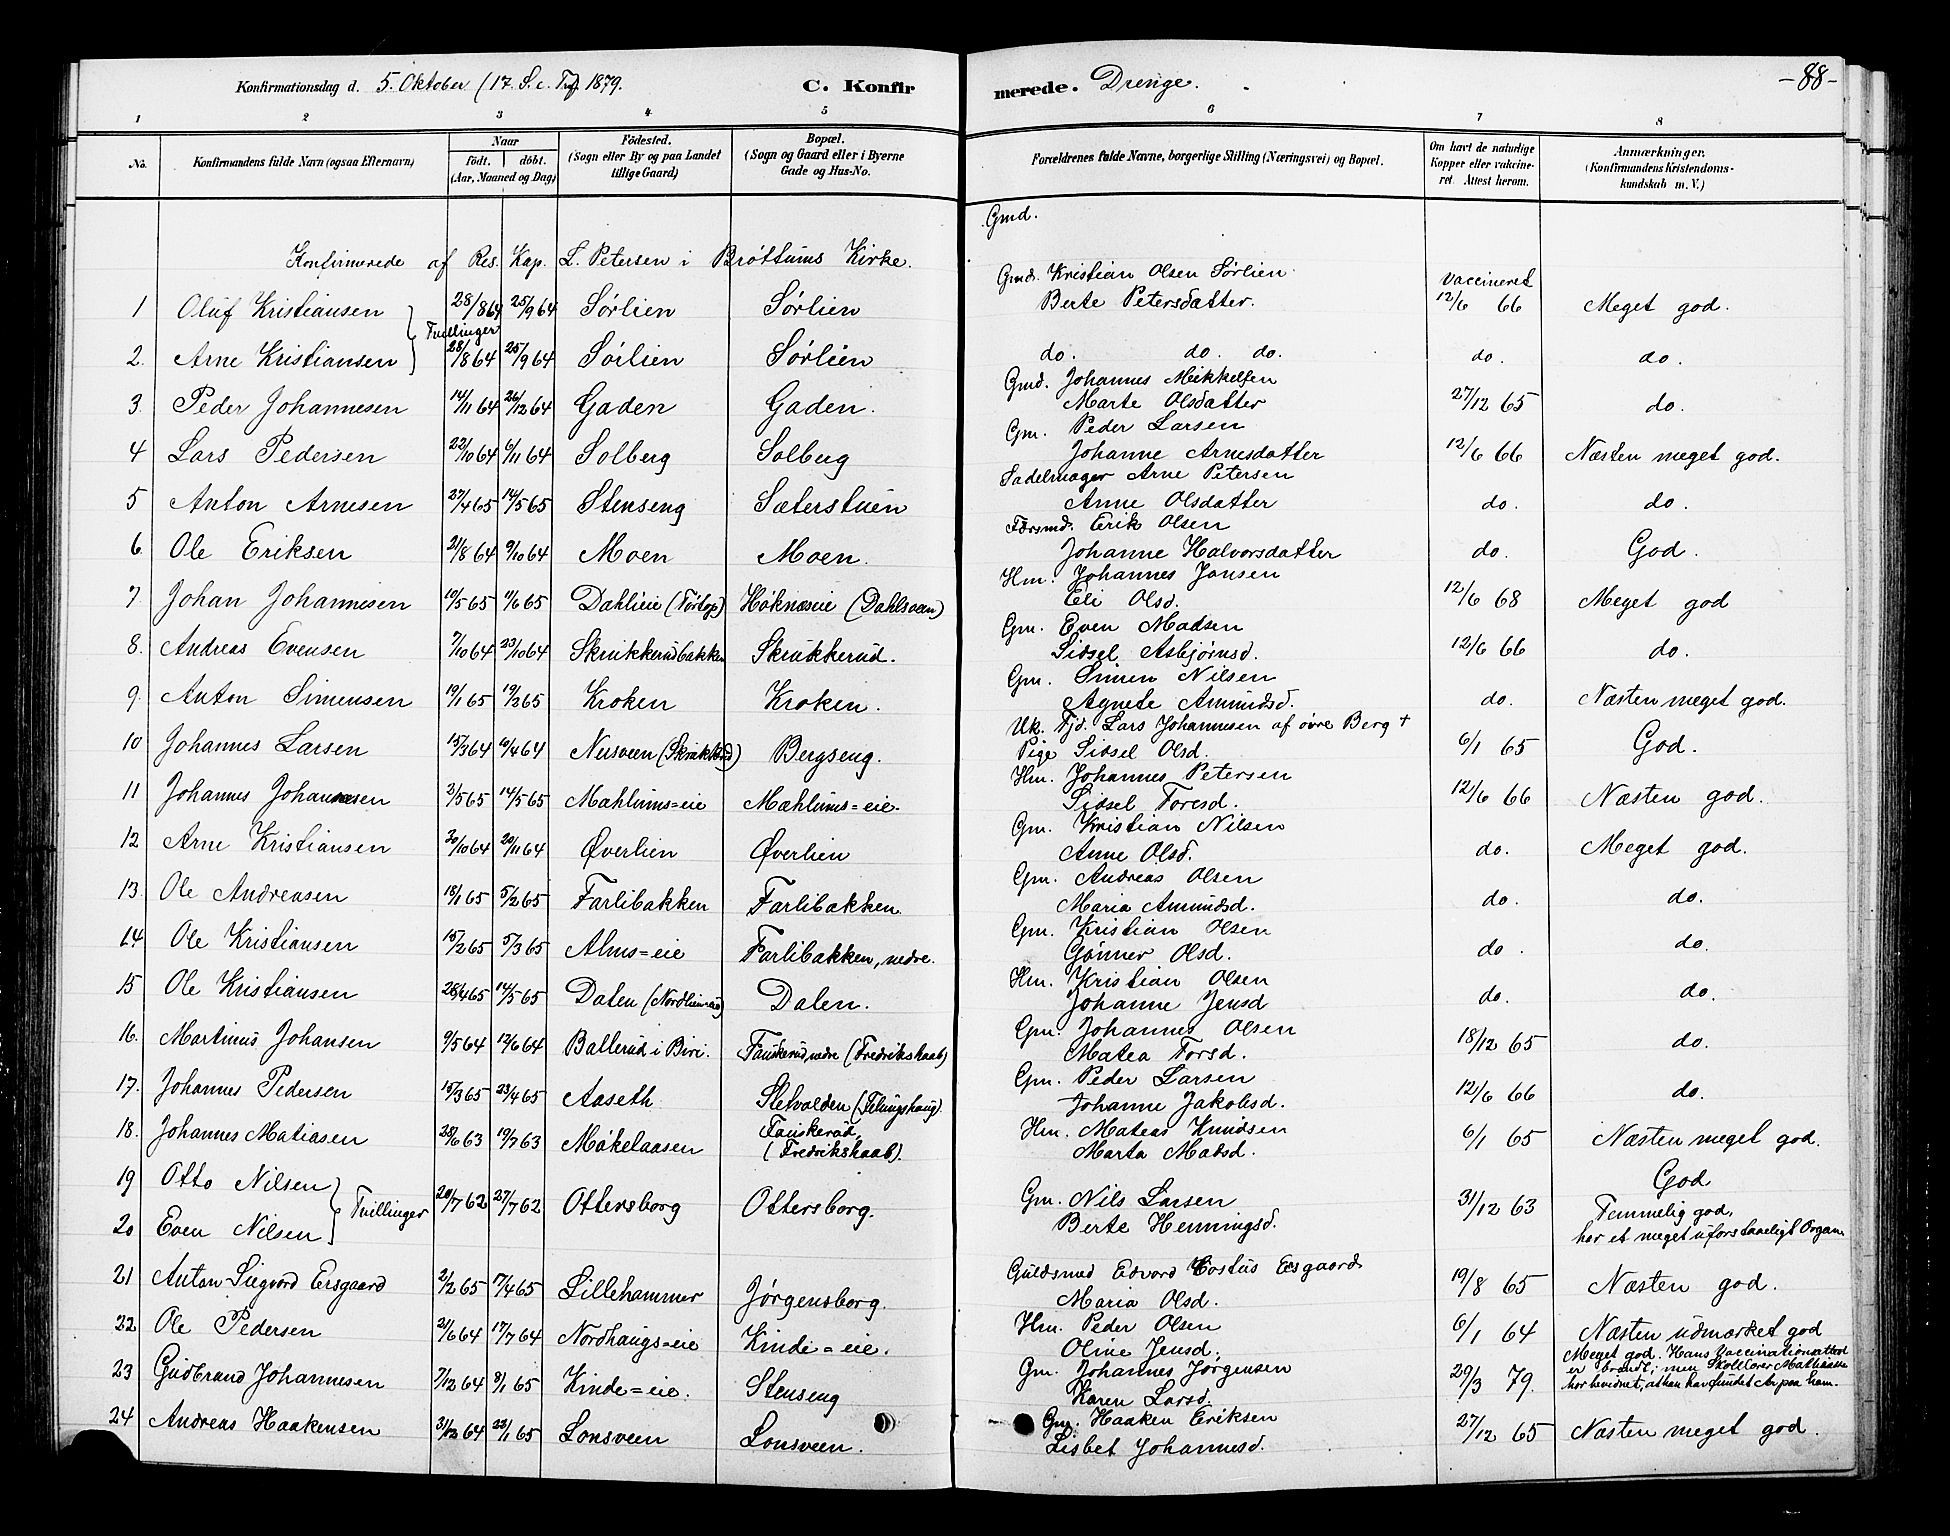 Konfirmationsdag d. 5. Oktober (17. S. e. Tr.) 1879. C. Konfirmerede. Drenge. -88-
1 2 3 4 5 6 7 8
No. Konfirmandens fulde Navn (ogsaa Efternavn) Naar født. døbt. (Aar, Maaned og Dag) Födested. (Sogn eller By og paa Landet tillige Gaard) Bopæl. (Sogn og Gaard eller i Byerne Gade og Hus-No. Forældrenes fulde Navne, borgerlige Stilling (Næringsvei) og Bopæl. Om havt de naturlige Kopper eller vakcineret. Attest herom. Anmærkninger. (Konfirmandens Kristendomskundskab m. V.)
Gmd.
Konfirmerede af Res. Kap. L. Petersen i Brøttums Kirke.
1 Oluf Kristiansen } Tvillinger 28/8 64 25/9 64 Sørlien Sørlien Gmd. Kristian Olsen Sørlien Berte Petersdatter. vaccineret 12/6 66 Meget god.
2. Arne Kristiansen } 28/8 64 25/9 64 Sørlien Sørlien do. do. do. do. do.
3. Peder Johannesen 14/11 64 26/12 64 Gaden Gaden. Gmd. Johannes Mikkelsen Marte Olsdatter 27/12 65 do.
4 Lars Pedersen 22/10 64 6/11 64 Solberg Solberg Gm. Peder Larsen Johanne Arnesdatter 12/6 66 Næsten meget god.
5 Anton Arnesen 27/4 65 14/5 65 Stenseng Sæterstuen Sadelmager Arne Petersen Anne Olsdatter do. do.
6. Ole Eriksen 21/8 64 9/10 64 Moen Moen. Forsmd. Erik Olsen Johanne Halvorsdatter do. God.
7 Johan Johannesen 10/5 65 11/6 65 Dahlieie (Tørtop) Høknæseie (Dahlsveen) Hm. Johannes Jonsen Eli Olsd. 12/6 68 Meget god
8. Andreas Evensen 7/10 64 23/10 64 Skrukkerudbakken Skrukkerud. Gm. Even Madsen Sidsel Asbjørnsd. 12/6 66 do.
9. Anton Simensen 19/1 65 19/2 65 Kroken Kroken. Gm. Simen Nilsen Agnete Amundsd. do. Næsten meget god.
10 Johannes Larsen 15/3 64 10/4 64 Nusveen (Skrukkerud) Bergseng. Uk. Tjd. Lars Johannesen af övre Berg + Pige Sidsel Olsd. 6/1 65 God.
11 Johannes Johannesen 3/5 65 14/5 65 Mæhlums=eie Mæhlums=eie. Hm. Johannes Petersen Sidsel Toresd. 12/6 66 Næsten god.
12 Arne Kristiansen 30/10 64 20/11 64 Øverlien Øverlien Gm. Kristian Nilsen Anne Olsd. do. Meget god.
13. Ole Andreasen 18/1 65 5/2 65 Farlibakken Farlibakken. Gm. Andreas Olsen Maria Amundsd. do. do.
14. Ole Kristiansen 15/2 65 5/3 65 Alms=eie Farlibakken, nedre. Gm. Kristian Olsen Gønner Olsd. do. do.
15 Ole Kristiansen 28/4 65 14/5 65 Dalen Dalen. Hm. Kristian Olsen Johanne Jensd do. do.
16. Martinus Johansen 9/5 64 12/6 64 Ballerud i Biri. Fauskerud, nedre (Fredrikshaab) Gm. Johannes Olsen Matea Torsd. 18/12 65 do.
17. Johannes Pedersen 15/3 65 23/4 65 Aaseth Sletvolden Gm. Peder Larsen Johanne Jakobsd. 12/6 66 do.
18. Johannes Matiasen 28/6 63 19/7 63 Møkelaasen Fauskerud, (Fredrikshaab). Hm. Mateas Knudsen Marta Matsd. 6/1 65 Næsten meget god.
19 Otto Nilsen } Tvillinger 20/7 62 27/7 62 Ottersborg Ottersborg. Gm. Nils Larsen Berte Henningsd. 31/12 63 God
20 Even Nilsen } Temmelig god, har et meget uforstaaeligt Organ.
21 Anton Sigvard Ersgaard 2/2 65 17/4 65 Lillehammer Jørgensborg. Guldsmed Edvard Ersgaard Maria Olsd. 19/8 65 Næsten god.
22 Ole Pedersen 2/6 64 17/7 64 Nordhaugs=eie Kinde=eie. Hm. Peder Olsen Oline Jensd. 6/1 64 Næsten udmærket god
23 Gudbrand Johannesen 7/12 64 8/1 65 Kinde=eie. Stenseng Gm. Johannes Jørgensen Karen Larsd. 29/3 79. Meget god. Hans Vaccinationsattest er brændt; men Skolelærer Mathiasen har bevidnet, at han har fundet Ar paa ham.
24 Andreas Haakensen 31/12 64 22/1 65 Lonsveen Lonsveen. Gm. Haaken Eriksen Lisbet Johannesd. 27/12 65 Næsten meget god.